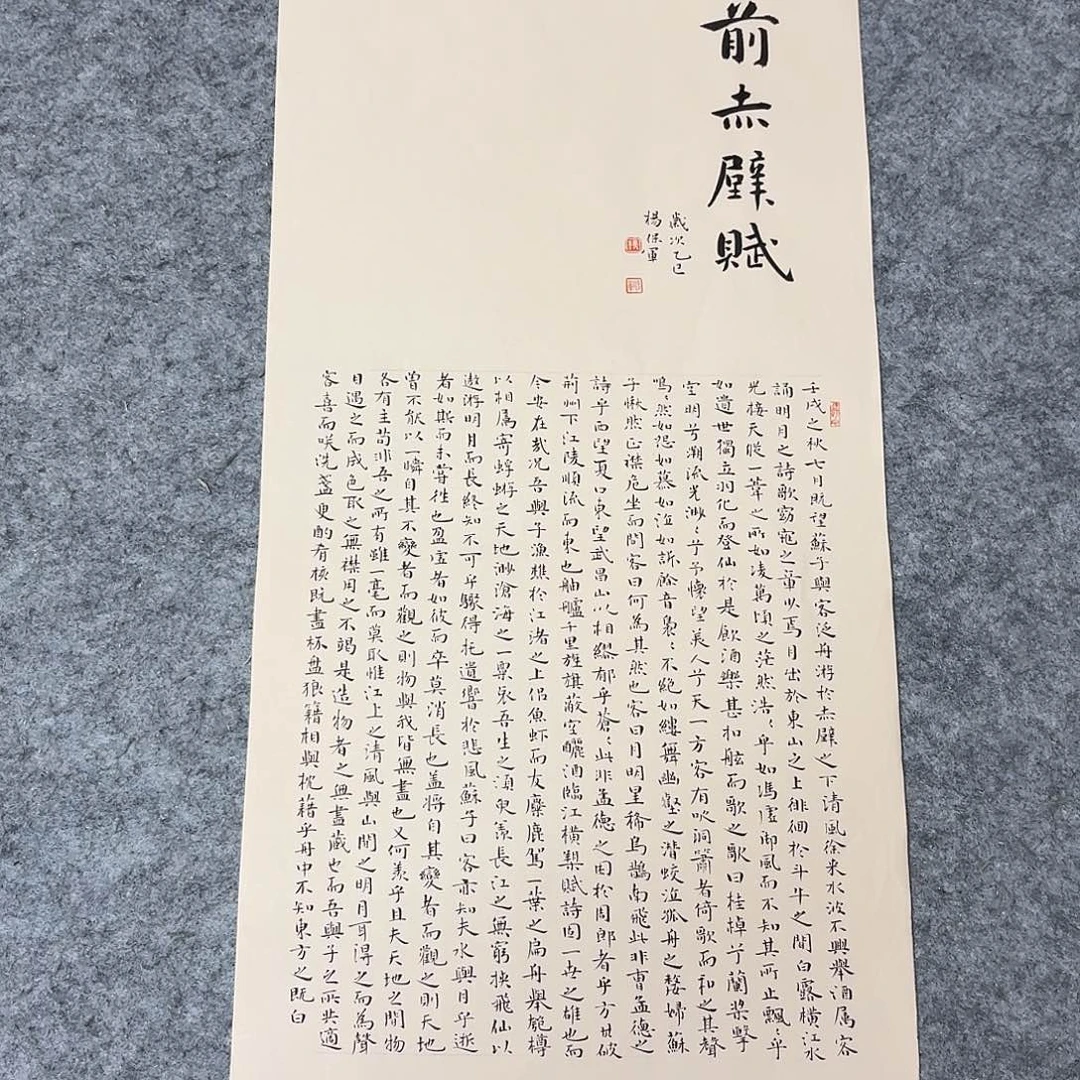 前赤壁賦
歲次乙巳
楊保軍
壬戌之秋七月既望蘇子與客泛舟游於赤壁之下清風徐来水波不興舉酒属客
誦明月之詩歌窈窕之章少焉月出於東山之上徘徊於斗牛之間白露橫江水
光接天縱一葦之所如凌萬頃之茫然浩〻乎如馮虛御風而不知其所止飄〻乎
如遺世獨立羽化而登仙於是飲酒樂甚扣舷而歌之歌曰桂棹兮蘭槳擊
空明兮溯流光渺〻兮予懷望美人兮天一方客有吹洞簫者倚歌而和之其聲
嗚〻然如怨如慕如泣如訴餘音裊〻不絕如縷舞幽壑之潛蛟泣孤舟之嫠婦蘇
子愀然正襟危坐而問客曰何為其然也客曰月明星稀烏鵲南飛此非曹孟德之
詩乎西望夏口東望武昌山以相繆郁乎蒼〻此非孟德之困於周郎者乎方其破
荊州下江陵順流而東也舳艫千里旌旗蔽空釃酒臨江橫槊賦詩固一世之雄也而
今安在哉况吾與子漁樵於江渚之上侶魚蝦而友麋鹿駕一葉之扁舟舉匏樽
以相属寄蜉蝣之天地渺滄海之一粟哀吾生之須臾羨長江之無窮挾飛仙以
遨游明月而長終知不可乎驟得托遺響於悲風蘇子曰客亦知夫水與月乎逝
者如斯而未嘗往也盈虛者如彼而卒莫消長也蓋將自其變者而觀之則天地
曾不能以一瞬自其不變者而觀之則物與我皆無盡也又何羨乎且夫天地之間物
各有主苟非吾之所有雖一毫而莫取惟江上之清風與山間之明月耳得之而為聲
目遇之而成色取之無襟用之不竭是造物者之無盡藏也而吾與子之所共適
客喜而咲洗盞更酌肴核既盡杯盤狼籍相與枕籍乎舟中不知東方之既白